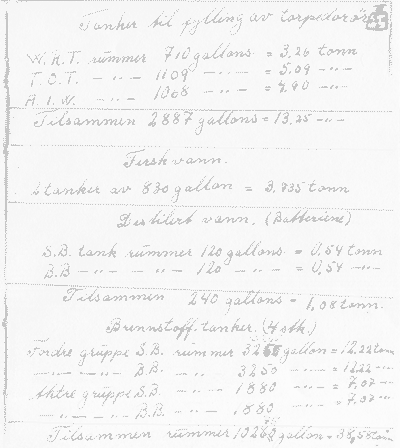 Tanker til fylling av torpedorör
55
W.R.T. rümmer 710 gallons = 3.26 tonn
T.O.T. - " - 1109 - " - = 5.09 - " -
A.I.W. - " - 1068 - " - = 4.90 - " -
Tilsammen 2887 gallons = 13.25 - " -
Fersk vann.
2 tanker av 830 gallon = 3.735 tonn
Destilert vann. (Batteriene)
S.B. tank rümmer 120 gallons = 0,54 tonn
B.B - " - " - 120 - " - = 0,54 - " -
Tilsammen 240 gallons = 1,08 tonn.
Brennstoff.tanker. (4 stk.)
Fordre grüppe S.B. rümmer 32 gallon = 12.22 tonn
- " - " - B.B. - " - 3250 - " - = 12.22 - " -
Aktre grüppe S.B. - " - 1880 - " - = 7,07 - " -
- " - " - B.B. - " - 1880 - " - = 7,07 - " -
Tilsammen rümmer gallon = 38,58 tonn